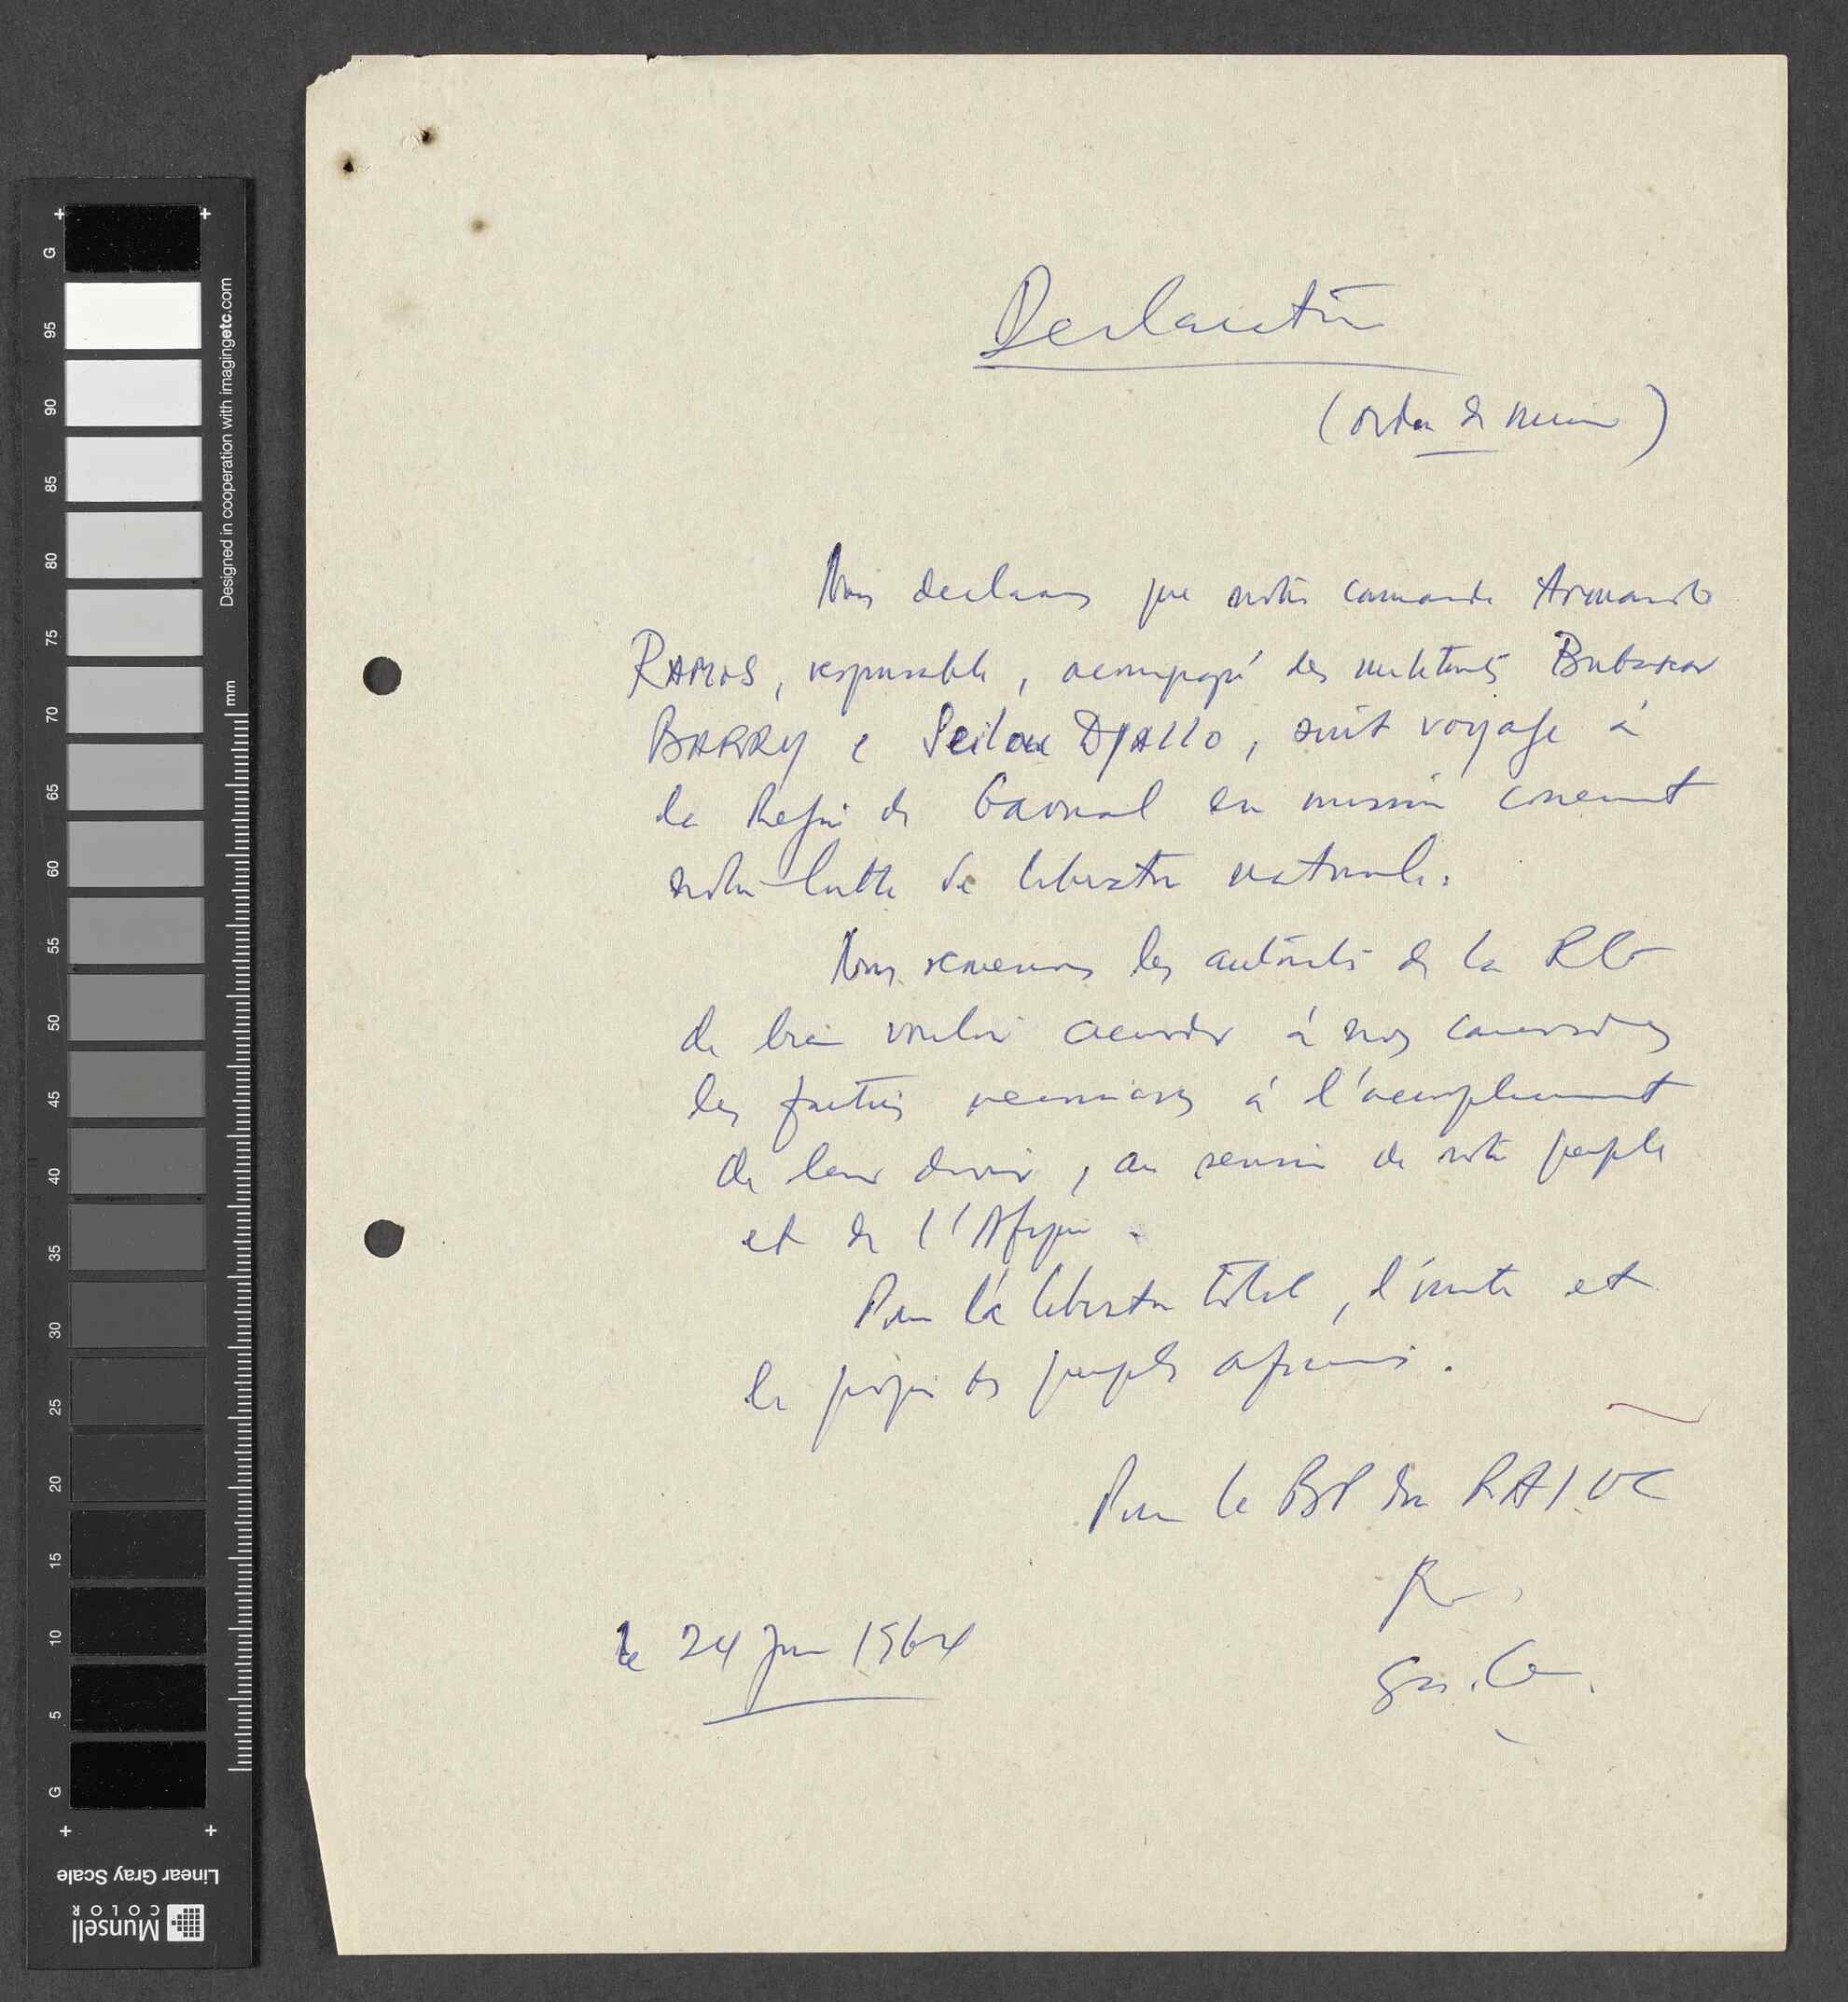 Declaration
(ordre de mission)
Nous declarons que notre camarade Armando
RAMOS, responsable, acompagné des militants Bubakar
BARRY e Seilou DJALLO, sont voyage à
la Région de Gaoual en mission concernant
notre lutte de liberation nationale.
Nous remercions les autorités de la RG
de bien vouloir accorder à nos camarades
les facilités necessaires à l'acomplissement
de leur devoir, au service de notre peuple
et de l'Afrique.
Pour la liberation total, l'unité et
le progrès des peuples africains.
Pour le BP du PAIGC
le 24 Juin 1964
G
95
90
85
80
75
70
65
60
55
50
45
40
35
30
25
20
15
10
5
G
mm
Designed in cooperation with imagingetc.com
Linear Gray Scale
Munsell
COLOR